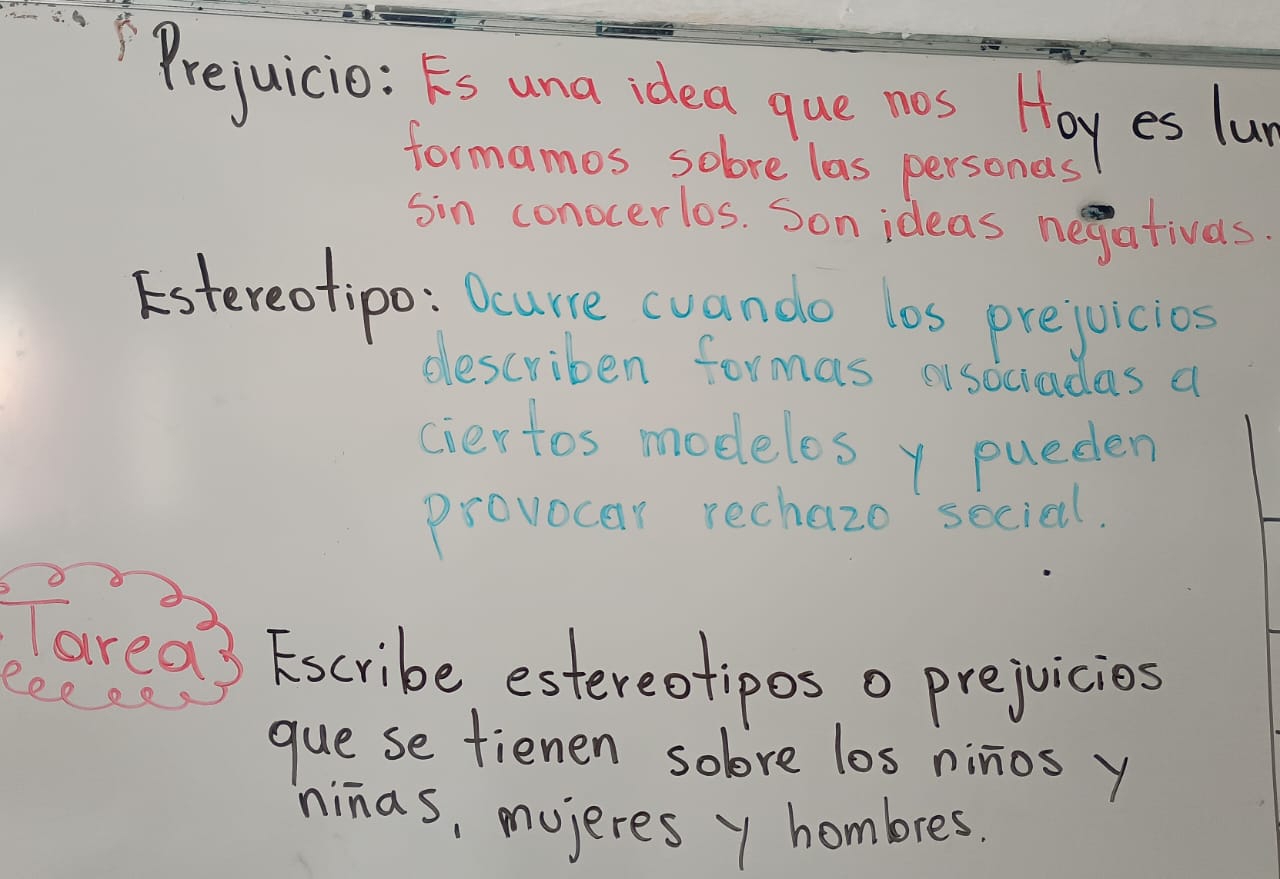 Prejuicio: Es una idea que nos
formamos sobre las personas
sin conocerlos. Son ideas negativas.
Hoy es lun
Estereotipo: Ocurre cuando los prejuicios
describen formas asociadas a
ciertos modelos y pueden
provocar rechazo social.
Tarea
Escribe estereotipos o prejuicios
que se tienen sobre los niños y
niñas, mujeres y hombres.